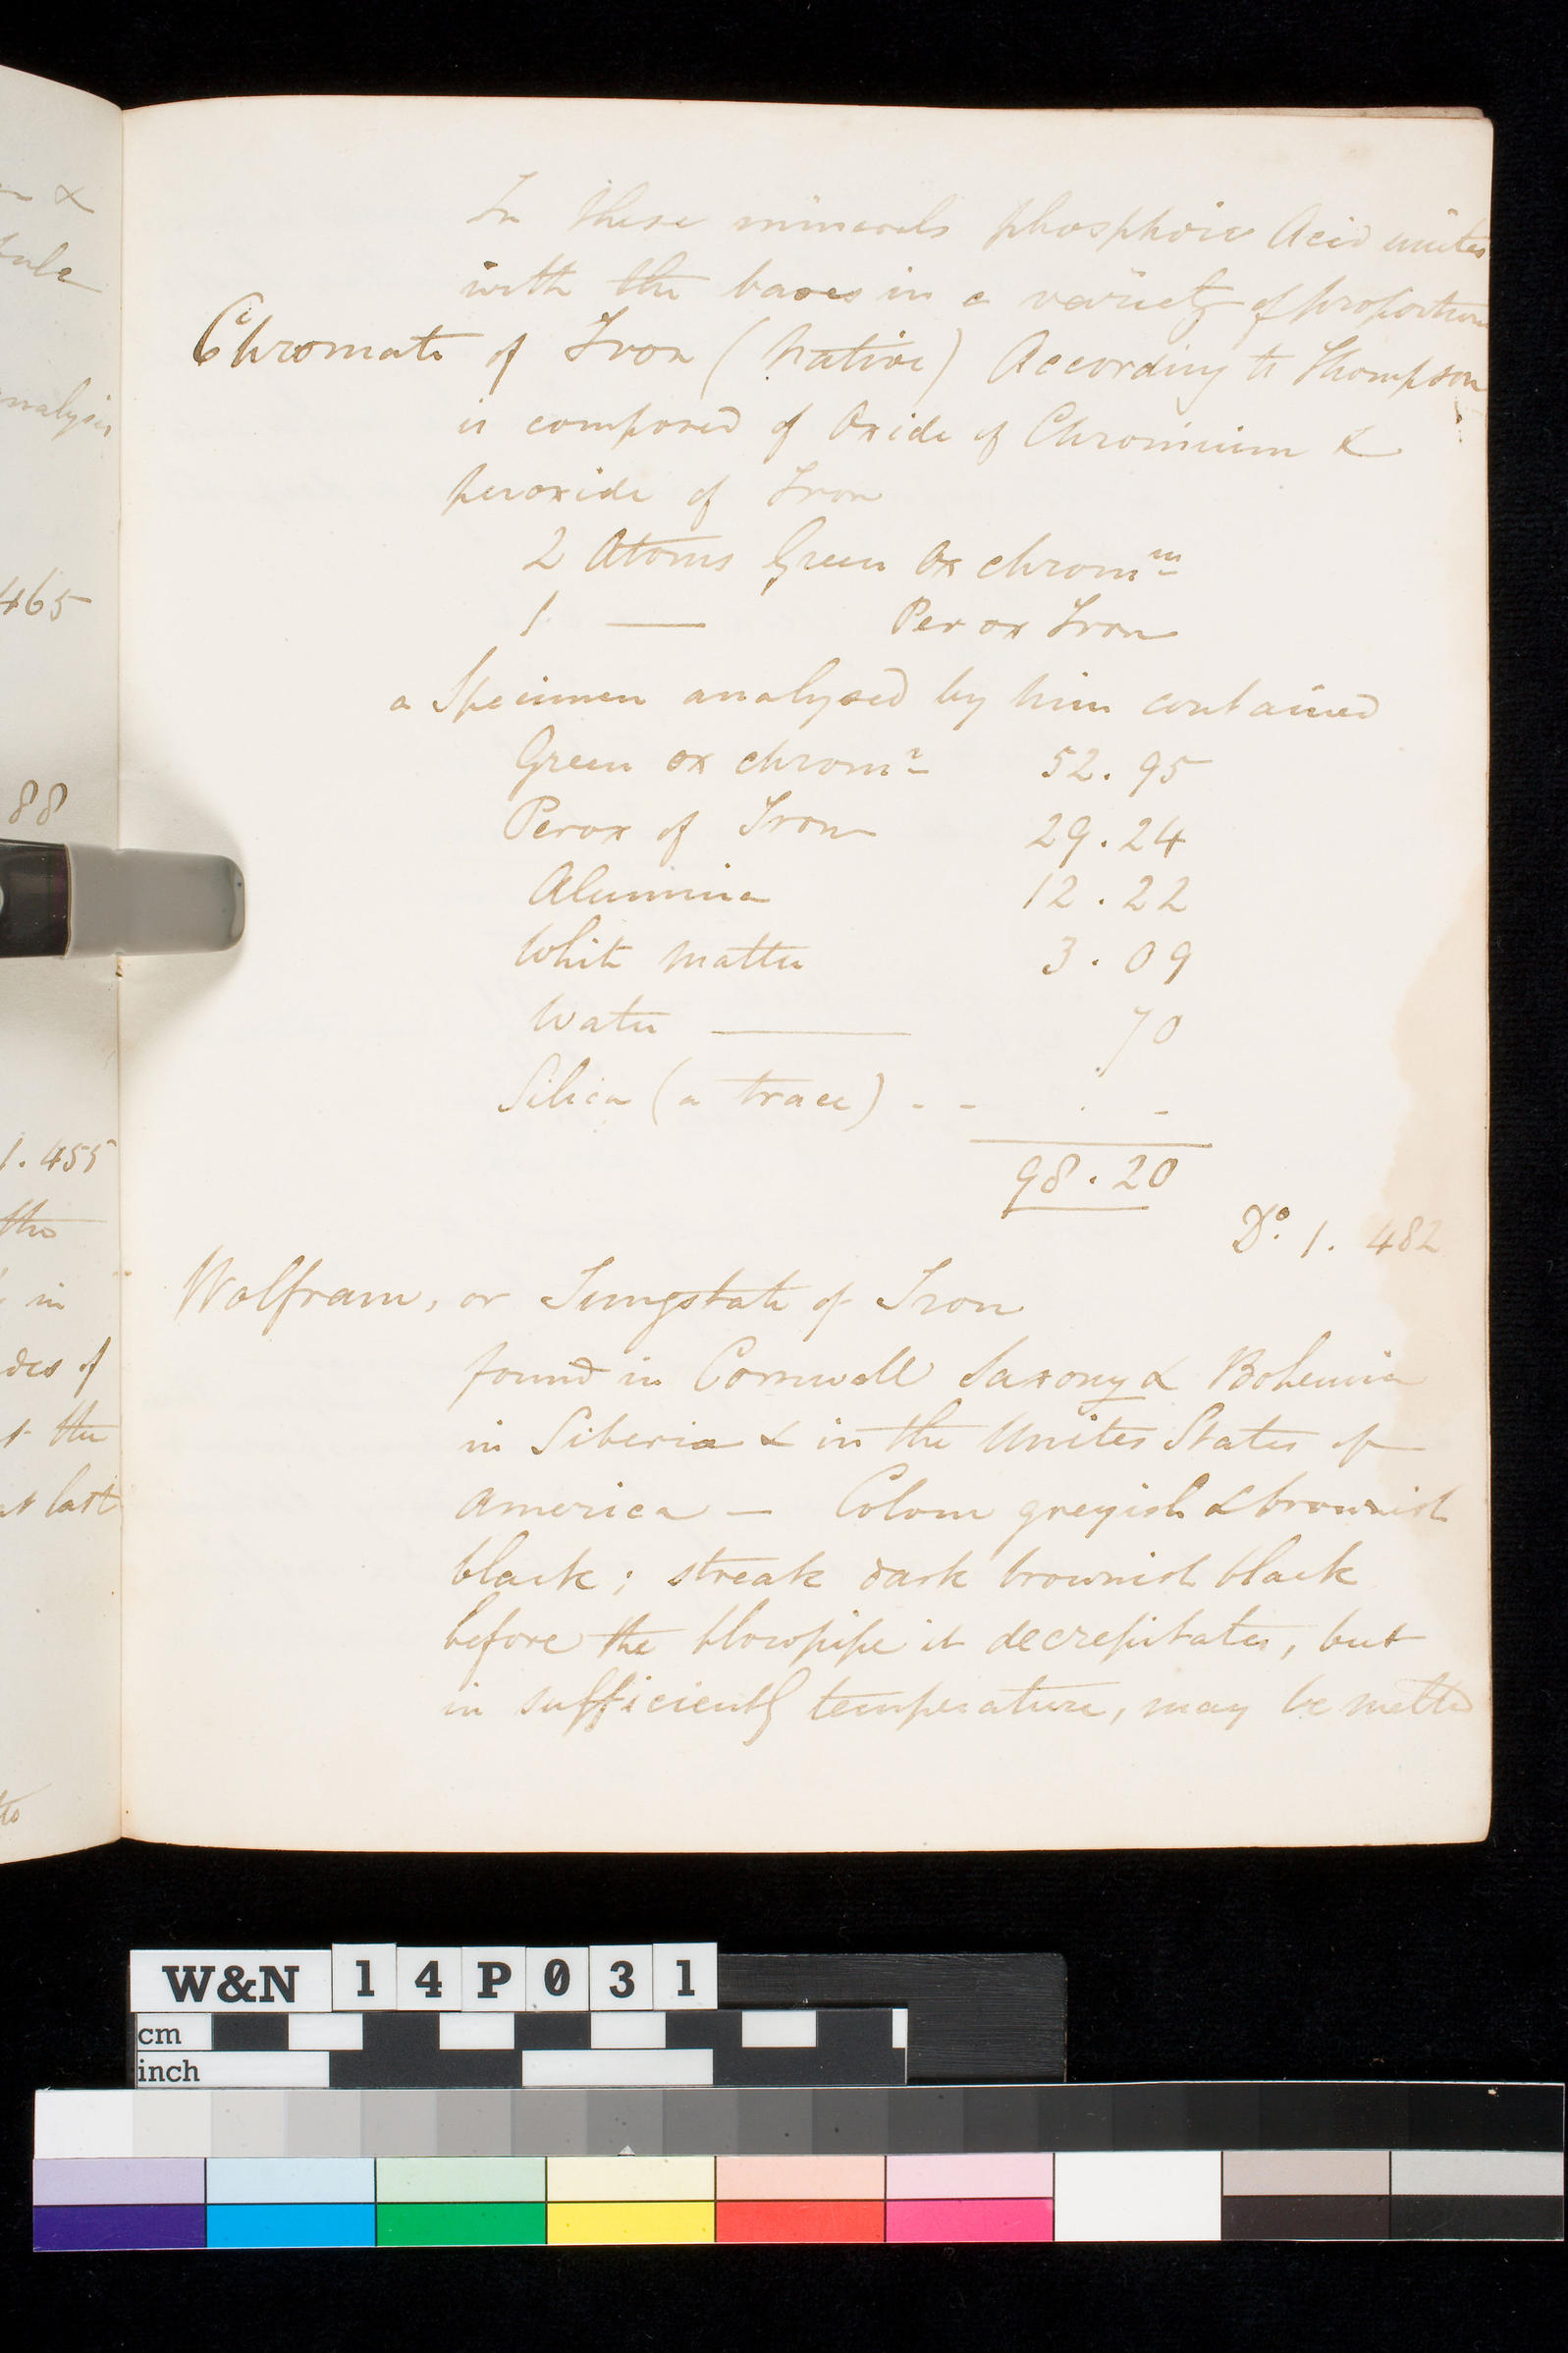 In these minerals phosphoric Acid unites
with the bases in a variety of proportions
Chromate of Iron (Native) According to Thompson
is composed of Oxide of Chromium &
peroxide of Iron
2 Atoms Green Ox chromm
1 — Per ox Iron
a Specimen analysed by him contained
Green ox chromm 52.95
Perox of Iron 29.24
Alumina 12.22
White matter 3.09
Water — 70
Silica (a trace) - - . -
98.20
Do. 1. 482
Wolfram, or Tungstate of Iron
found in Cornwall Saxony & Bohemia
in Siberia & in the Unites States of
America — Colour greyish & brownish
black; streak dark brownish black
before the blowpipe it decrepitates, but
in sufficiently temperature, may be melted
465
88
1.455
the
in
des of
t the
at last
to
W&N 14P031
cm
inch